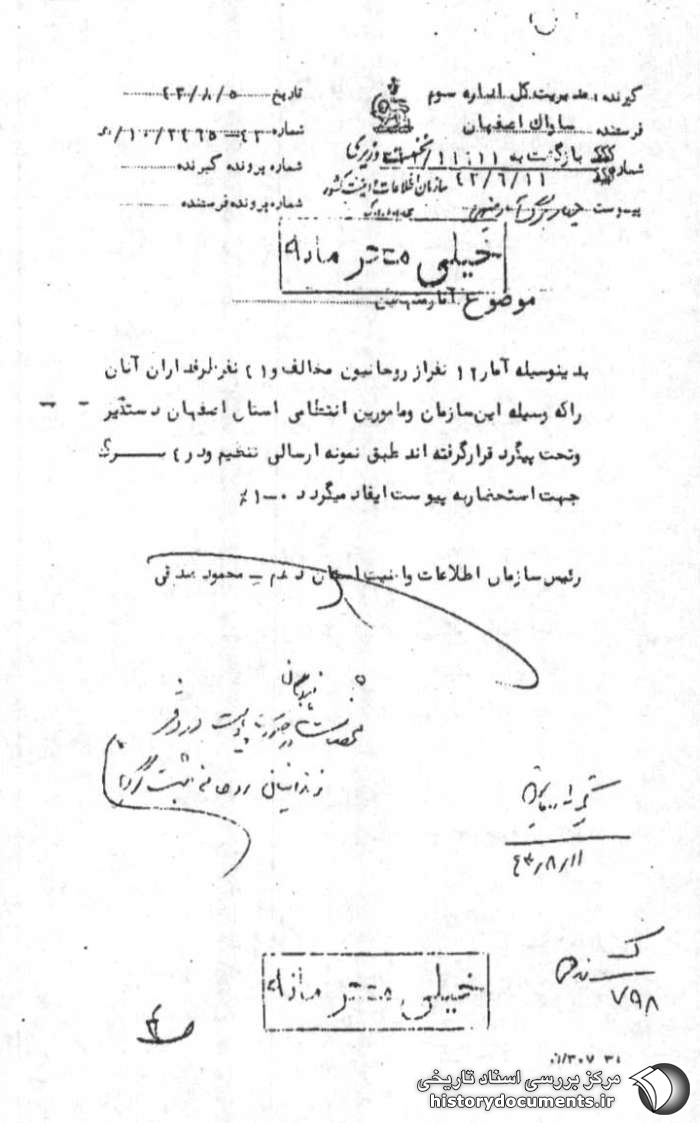 گیرنده: مدیریت کل اداره سوم
فرستنده ساواک اصفهان
شماره بازگشت به ۱۱۰۱۱/
۴۲/۶/۱۱
پیوست
نخست وزیری
سازمان اطلاعات و امنیت کشور
تاریخ ۴۳/۸/۵
شماره
شماره پرونده گیرنده
شماره پرونده فرستنده
خیلی محرمانه
موضوع آمار
بدینوسیله آمار ۱۲ نفر از روحانیون مخالف و ۴۱ نفر طرفداران آنان
را که وسیله این سازمان و مامورین انتظامی استان اصفهان دستگیر
و تحت پیگرد قرار گرفته اند طبق نمونه ارسالی تنظیم و در ۴ سری
جهت استحضار به پیوست ایفاد میگردد
رئیس سازمان اطلاعات و امنیت استان دهم ـ محمود
در دفتر
زندانیان روحانی ثبت گردد
۴۳/۸/۱۱
۷۹۸
خیلی محرمانه
مرکز بررسی اسناد تاریخی
historydocuments.ir